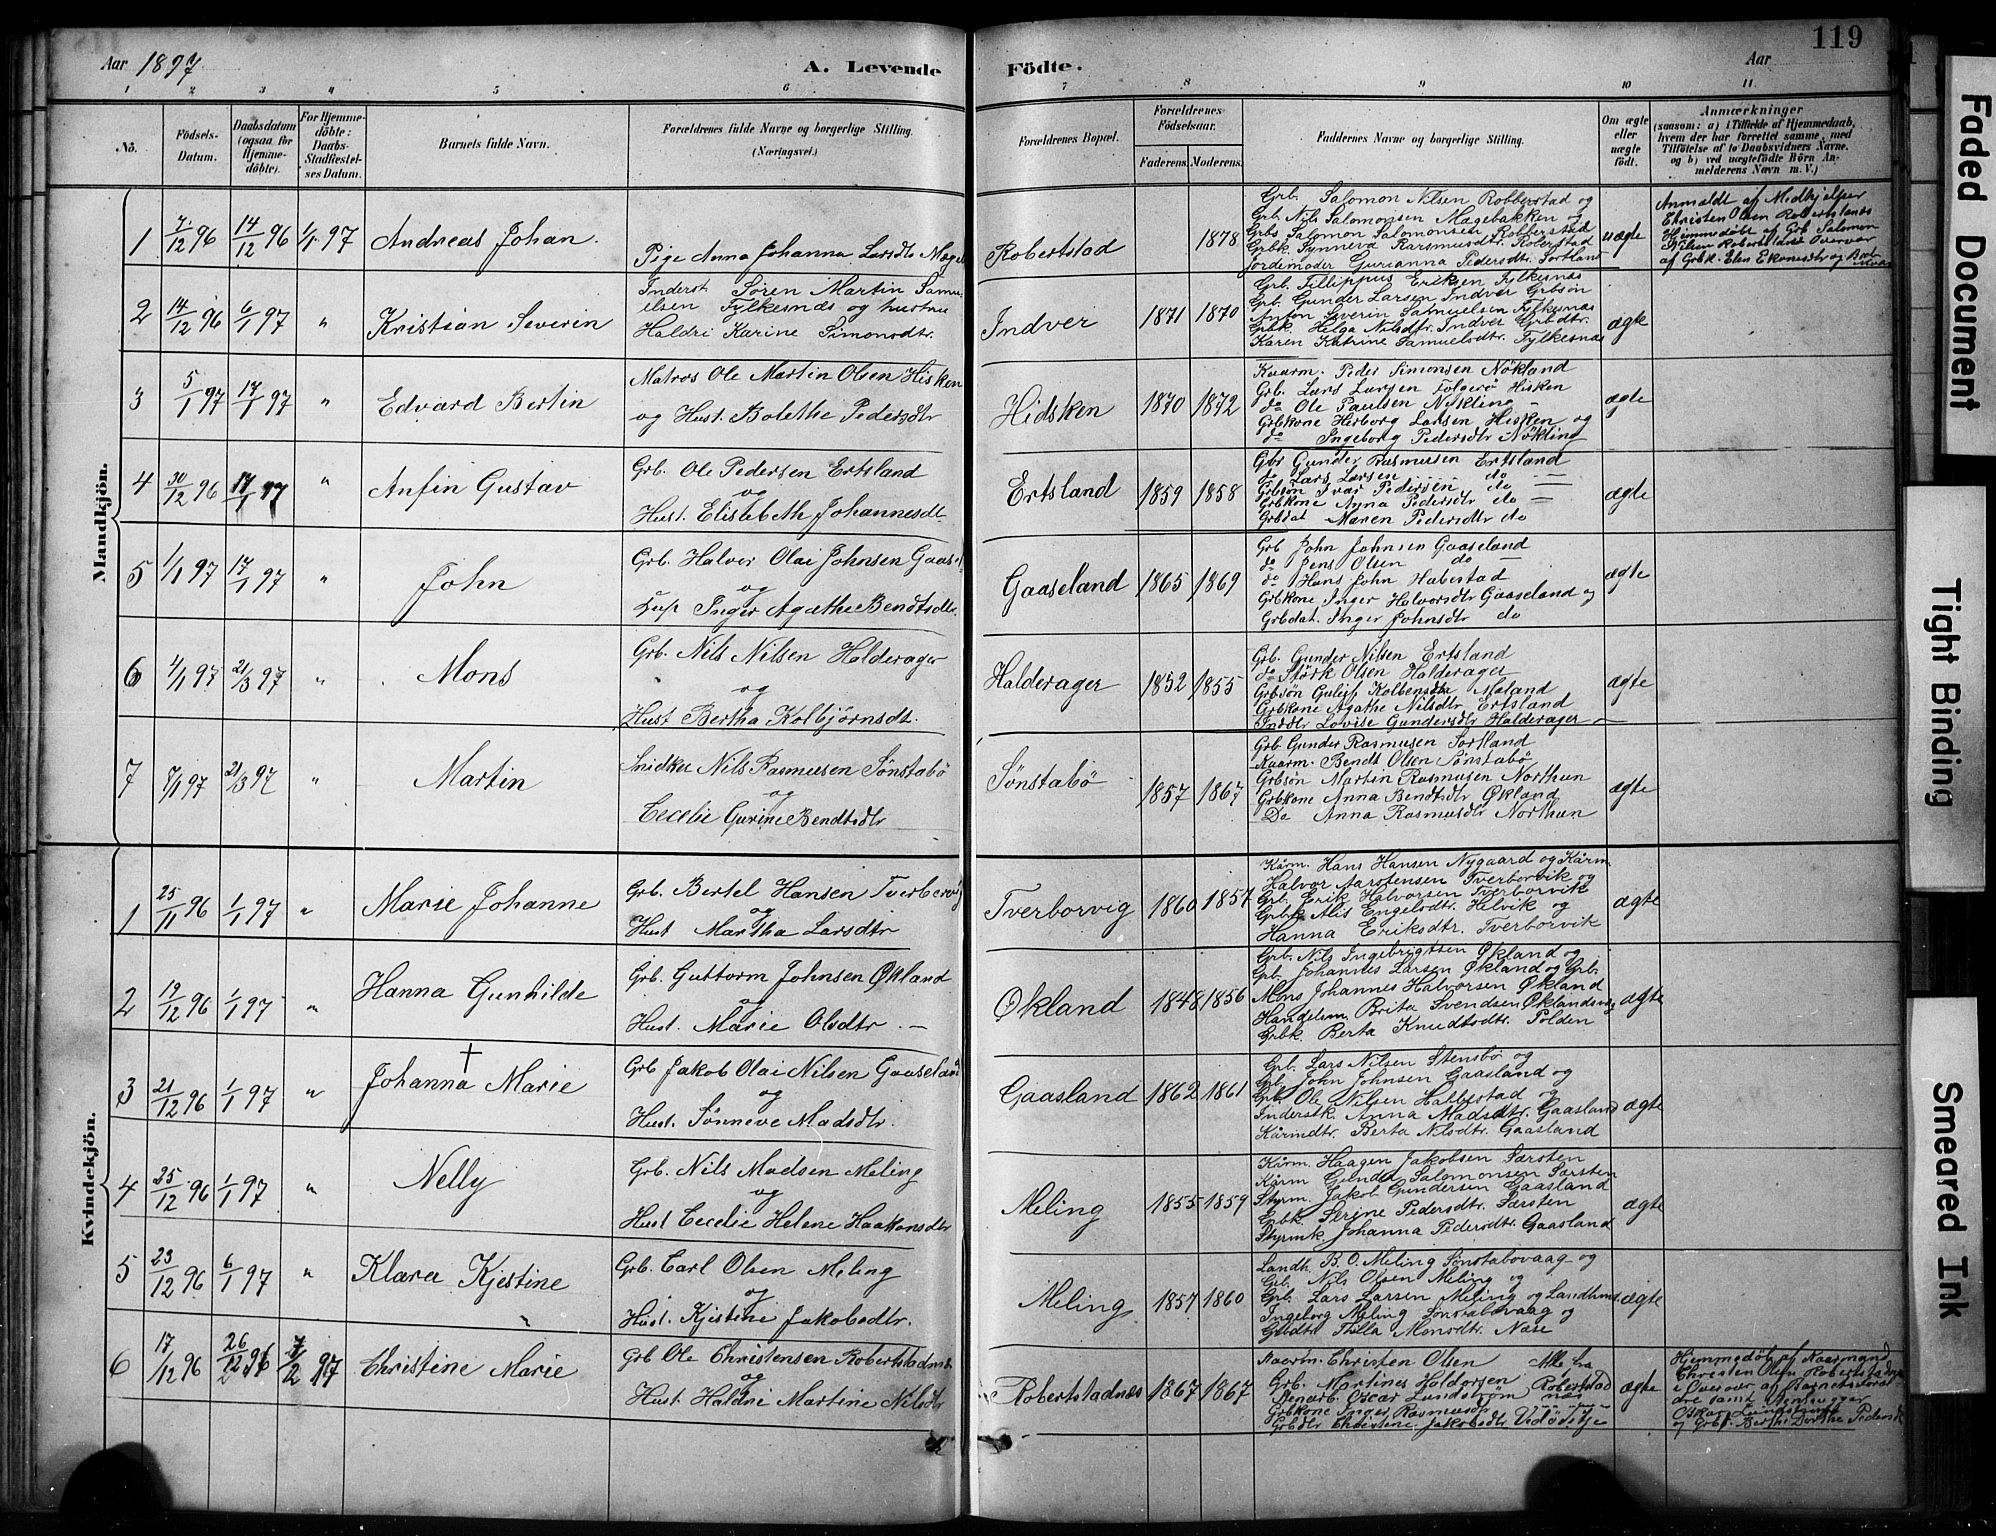 119
Aar 1897.
A. Levende Födte.
Aar
1 2 3 4 5 6 7 8 9 10 11
No.
Födsels-Datum.
Daabsdatum (ogsaa for Hjemme-döbte).
For Hjemme-döbte: Daabs-Stadfæstel-ses Datum.
Barnets fulde Navn.
Forældrenes fulde Navne og borgerlige Stilling. (Næringsvei.)
Forældrenes Bopæl.
Forældrenes Födselsaar.
Faderens. Moderens.
Faddernes Navne og borgerlige Stilling.
Om ægte eller uægte födt.
Anmærkninger
(saasom: a) i Tilfælde af Hjemmedaab,
hvem der har forrettet samme, med
Tilföielse af to Daabsvidners Navne.
og b) ved uægtefödte Börn An-
melderens Navn m. V.)
Mandkjön.
1 7/12 96 14/12 96 1/1 97 Andreas Johan.
Pige Anna Johanna Larsdtr
Robertstad 1878
Grb. Salomon Nilsen Robberstad og
Grb. Nils Salomonsen Mægebakken og
Grbs Salomon Salomonsen Robberstad
Grbk. Synneva Rasmusdtr. Roberstad
Jordemoder Gurianna Pedersdtr. Sortland
uægte
Anmeldt af Medhjelper
Christen Olsen Robertstadnæs
Hjemmedöbt af Grb Salomon
Nilsen Robertstad Overvær
af Grbk. Elen
2 14/12 96 6/1 97 " Kristian Severin
Inderst Sören Martin Samu-
elsen Fylkesnæs og hustru
Haldri Karine Simonsdtr.
Indver 1871 1870
Grb. Fillippus Eriksen Fylkesnæs
Grb. Gunder Larsen Indver Grbsön
Anton Severin Samuelsen Fylkesnæs
Grbk. Helga Nilsdtr. Indver Grbdtr.
Karen Katrine Samuelsdtr. Fylkesnæs
ægte
3 5/1 97 17/1 97 " Edvard Bertin
Matros Ole Martin Olsen Hisken
og Hust. Bolethe Pedersdtr
Hidsken 1870 1872
Kaarm. Peder Simonsen Nökland
Grb. Lars Larsen Folgerö Hisken
do Ole Paulsen Nökling
Grbkone Herborg Larsen Hisken og
do Ingeborg Pedersdtr Nökling
ægte
4 30/12 96 17/1 97 " Anfin Gustav
Grb. Ole Pedersen Ertsland
og
Hust. Elisebeth Johannesdt.
Ertsland 1859 1858
Gbr Gunder Rasmusen Ertsland
do Lars Larsen do
Grbsön Ivar Pedersen do
Grbkone Anna Pedersdtr do
Grbdat Maren Pedersdtr do
ægte
5 1/1 97 17/1 97 " John
Grb. Halvor Olai Johnsen Gaasel.
og
Inger Agathe Bendtsdtr.
Gaaseland 1865 1869
Grb John Johnsen Gaaseland
do Jens Olsen do
do Hans John Habestad
Grbkone Inger Halvorsdtr Gaaseland og
Grbdat. Inger Johnsdtr do
ægte
6 1/1 97 21/3 97 " Mons
Grb. Nils Nilsen Halderager
og
Hust Bertha Kolbjörnsdt.
Halderager 1852 1855
Grb. Gunder Nilsen Ertsland
do Störk Olsen Halderager
Grbsön Guleif Kolbensdtr Meland
Grbkone Agathe Nilsdtr Ertsland
Inddtr Lovise Gundersdtr Halderager
ægte
7 8/1 97 21/3 97 " Martin
Snidker Nils Rasmusen Sönstabö
og
Cecelie Gurine Bendtsdtr
Sönstabö 1857 1867
Grb Gunder Rasmusen Sortland
Kaarm. Bendt Olsen Sönstabö
Grbsön Martin Rasmusen Northun
Grbkone Anna Bendtsdtr Økland
Do Anna Rasmusdtr Northun
ægte
Kvindekjön.
1 25/11 96 1/1 97 " Marie Johanne
Grb. Bertel Hansen Tverborvig
og
Hust Martha Larsdtr
Tverborvig 1860 1857
Kårm. Hans Hansen Nygaard og Kårm
Halvor Aarstensen Tverborvik og
Grb. Erik Halvorsen Tverborvik
Grbk Alis Engelsdtr. Helvik og
Hanna Eriksdtr. Tverborvik
ægte
2 19/12 96 1/1 97 " Hanna Gunhilde
Grb. Guttorm Johnsen Økland
og
Hust. Marie Olsdtr.
Økland 1848 1856
Grb. Nils Ingebrygtsen Økland og
Grb. Johannes Larsen Økland og Grb.
Mons Johannes Halvorsen Økland
Handelsm. Brita Svendsen Øklandsvåg
Grbk. Berta Knudtsdtr. Folden
ægte
3 21/12 96 1/1 97 " Johanna Marie †
Grb Jakob Olai Nilsen Gaaseland
og
Hust. Sönneve Madsdtr.
Gaasland 1862 1861
Grb. Lars Nilsen Stensbö og
Grb. John Johnsen Gaasland og
Grb. Ole Nilsen Habbestad og
Inderstk. Anna Madsdtr. Gaasland
Kårmdtr. Berta Nilsdtr. Gaasland
ægte
4 25/12 96 1/1 97 " Nelly
Grb. Nils Madsen Meling
og
Hust Cecelie Helene Haakonsdtr
Meling 1855 1859
Kårm. Haagen Jakobsen Særsten
Kårm Gunder Salomonsen Særsten
Styrm. Jakob Gundersen Gaasland
Grbk. Serine Pedersdtr. Særsten
Styrmk. Johanna Pedersdtr. Gaasland
ægte
5 23/12 96 6/1 97 " Klara Kjestine
Grb. Carl Olsen Meling
og
Hust. Kjestine Jakobsdtr.
Meling 1857 1860
Landh. B. O. Meling Sönstabovaag og
Grb. Nils Olsen Meling og
Grb. Lars Larsen Meling og Landhms
Ingeborg Meling Sönstabovaag og
Grbdtr Thilla Monsdtr. Næse
ægte
6 17/12 96 26/12 96 7/2 97 Christine Marie
Grb Ole Christensen Robertstadnæs
og
Hust Haldri Martine Nilsdtr
Robertstadnæs 1867 1867
Kaarm. Christen Olsen Alle fra
Grb. Martines Haldorsen Robertstad
Stenarb. Oscar Lundström næs
Grbkone Inger Rasmusdtr
Grbdtr Christine Jakobsdtr
ægte
Hjemmedöbt af Kaarmand
Christen Olsen Robertstadnæs
i Overvær af Barnets foræl
dre samt Stenhugger
Oskar Lundström
og Grbk. Berthe Dorthe Pedersdt
Faded Document
Tight Binding
Smeared Ink